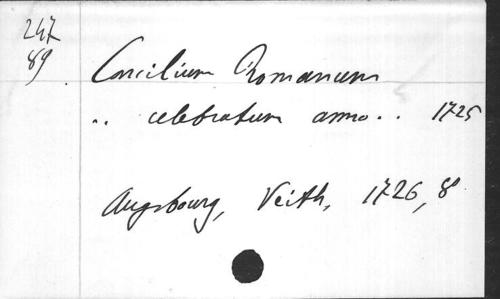 247
89
Concilium Romanum
.. celebratum anno.. 1725
Augsbourg, Veith, 1726, 8°